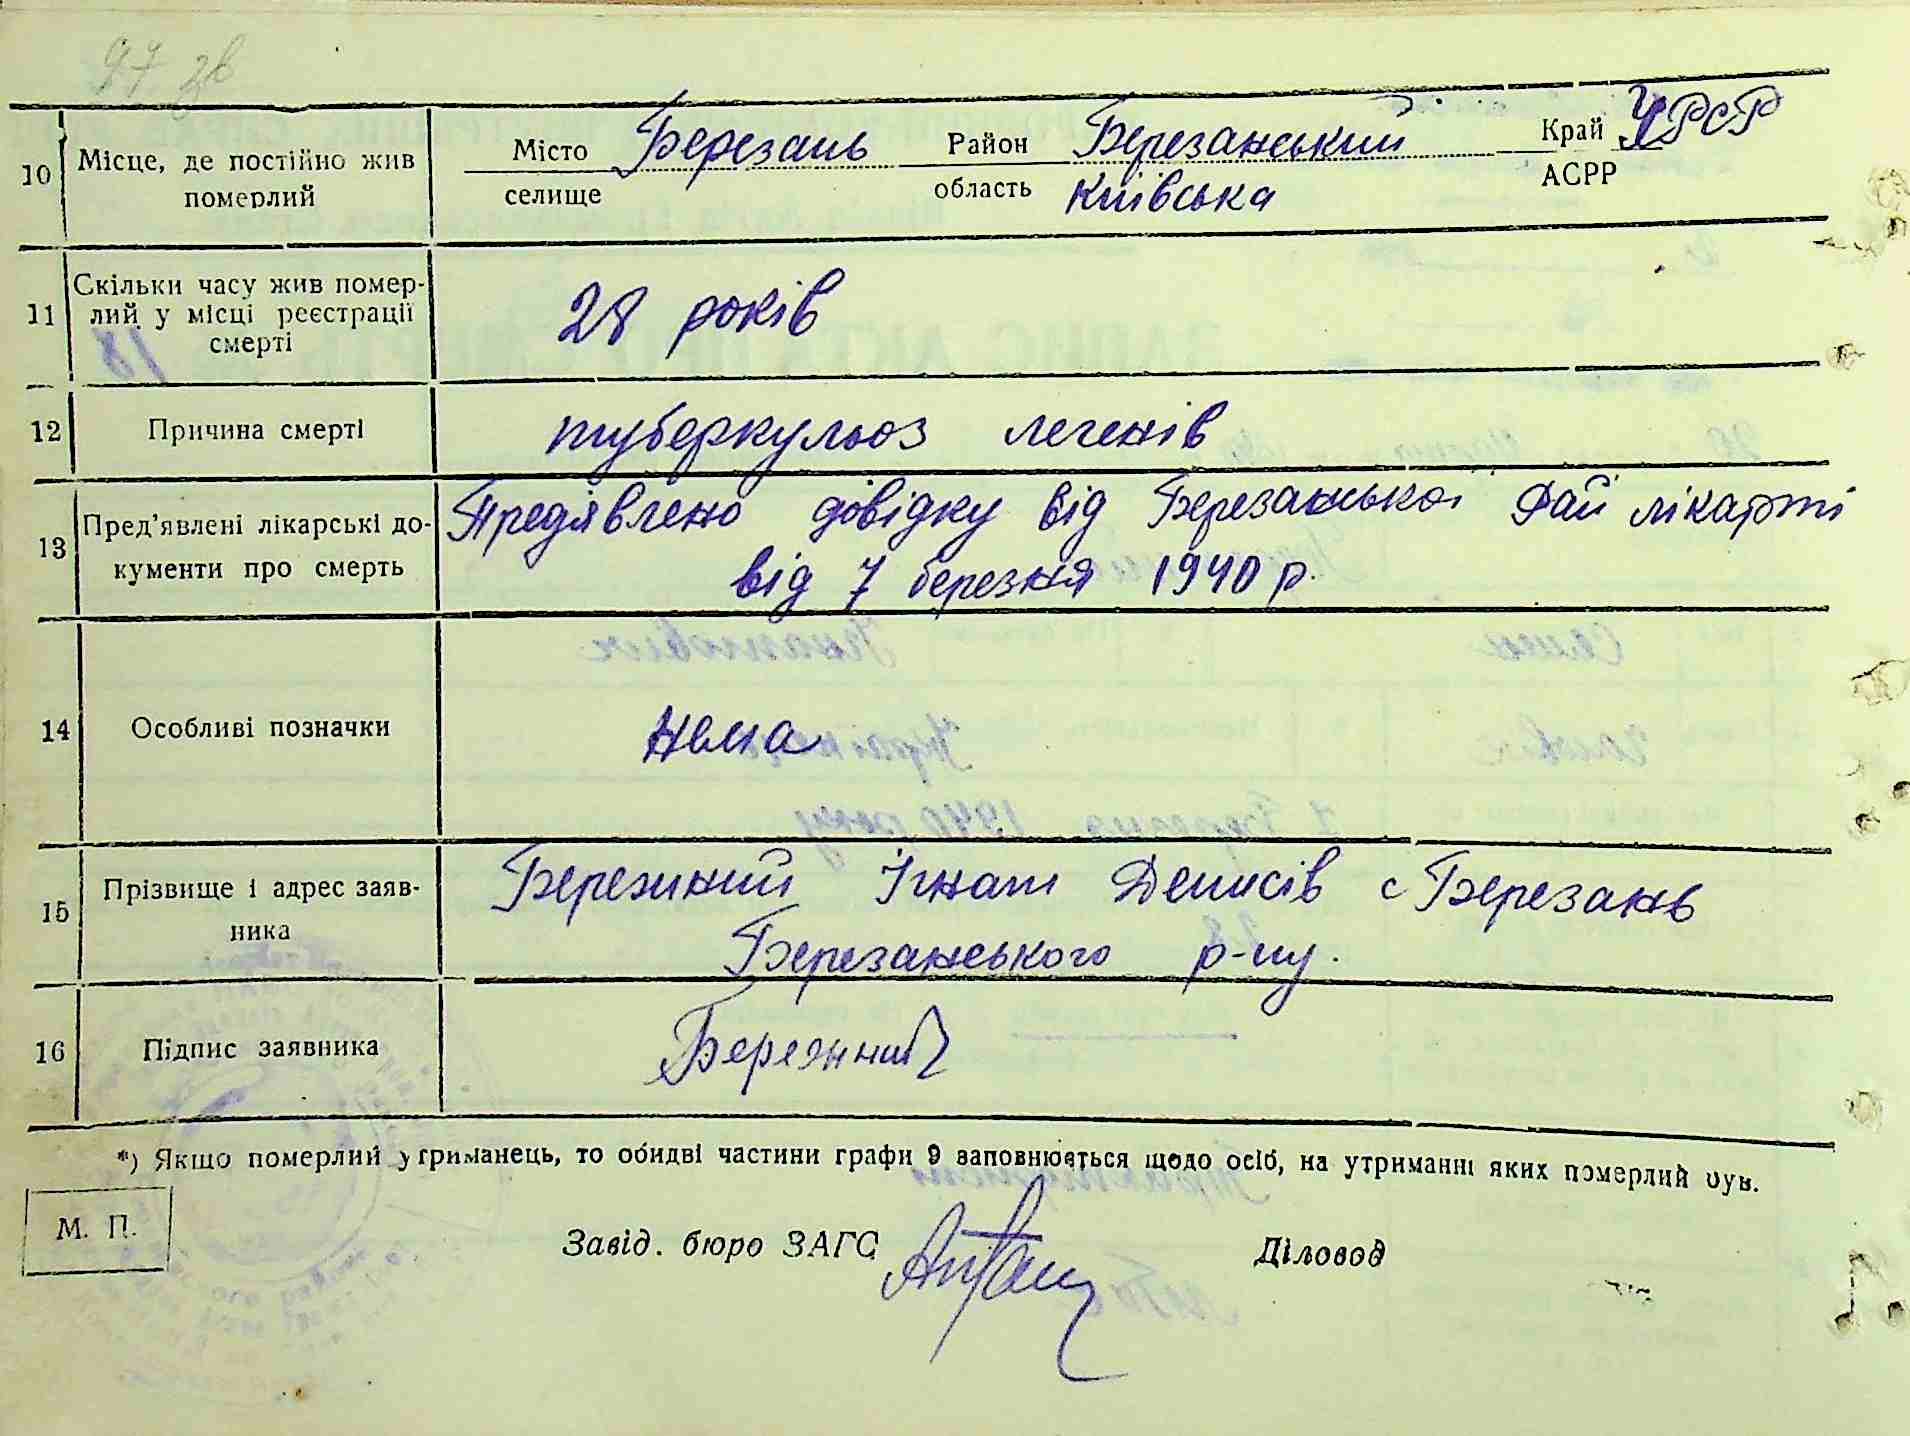 97 зв
10 Місце, де постійно жив померлий
Місто Березань Район Березанський Край УРСР
селище область Київська АСРР
11 Скільки часу жив помер-
лий у місці реєстрації
смерті
28 років
12 Причина смерті туберкульоз легенів
13 Пред'явлені лікарські до-
кументи про смерть
Предявлено довідку від Березанської Рай лікарні
від 7 березня 1940 р.
14 Особливі позначки нема
15 Прізвище і адрес заяв-
ника
Бережний Ігнат Денисів с Березань
Березанського р-ну.
16 Підпис заявника Бережний
*) Якщо померлий утриманець, то обидві частини графи 9 заповнюється щодо осіб, на утриманні яких померлий був.
М. П.
Завід. бюро ЗАГС Діловод